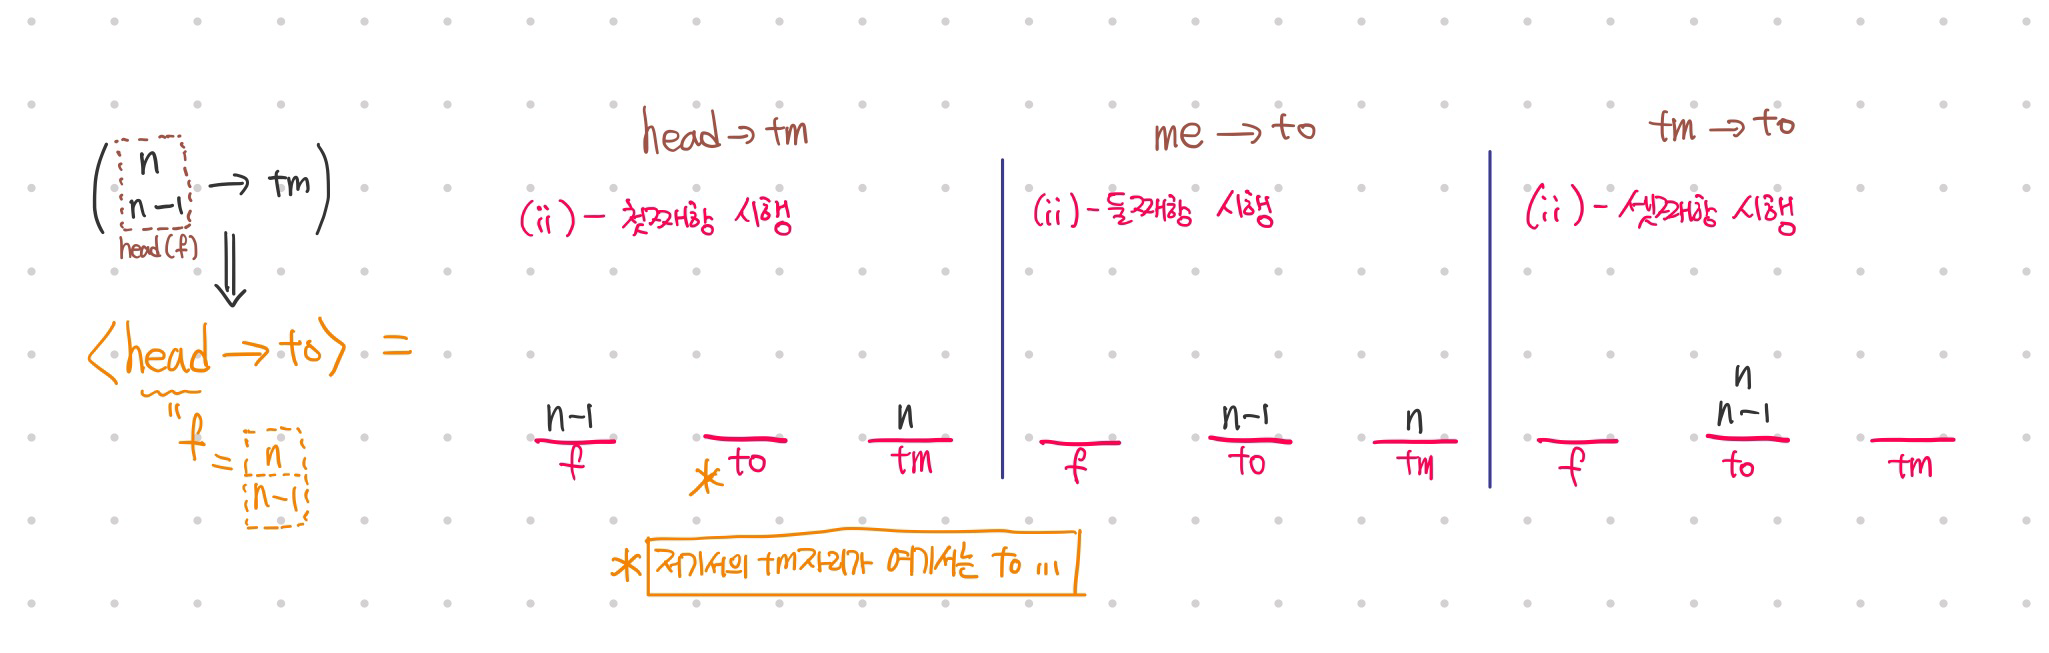 ( n
n-1 → tm )
head(f)
⇓
<head → to> =
" f = n
n-1
head → tm
(ii) - 첫째항 시행
n-1 n
f to tm
*
me → to
(ii) - 둘째항 시행
n-1 n
f to tm
tm → to
(ii) - 셋째항 시행
n
n-1
f to tm
* 저기서의 tm자리가 여기서는 to ...